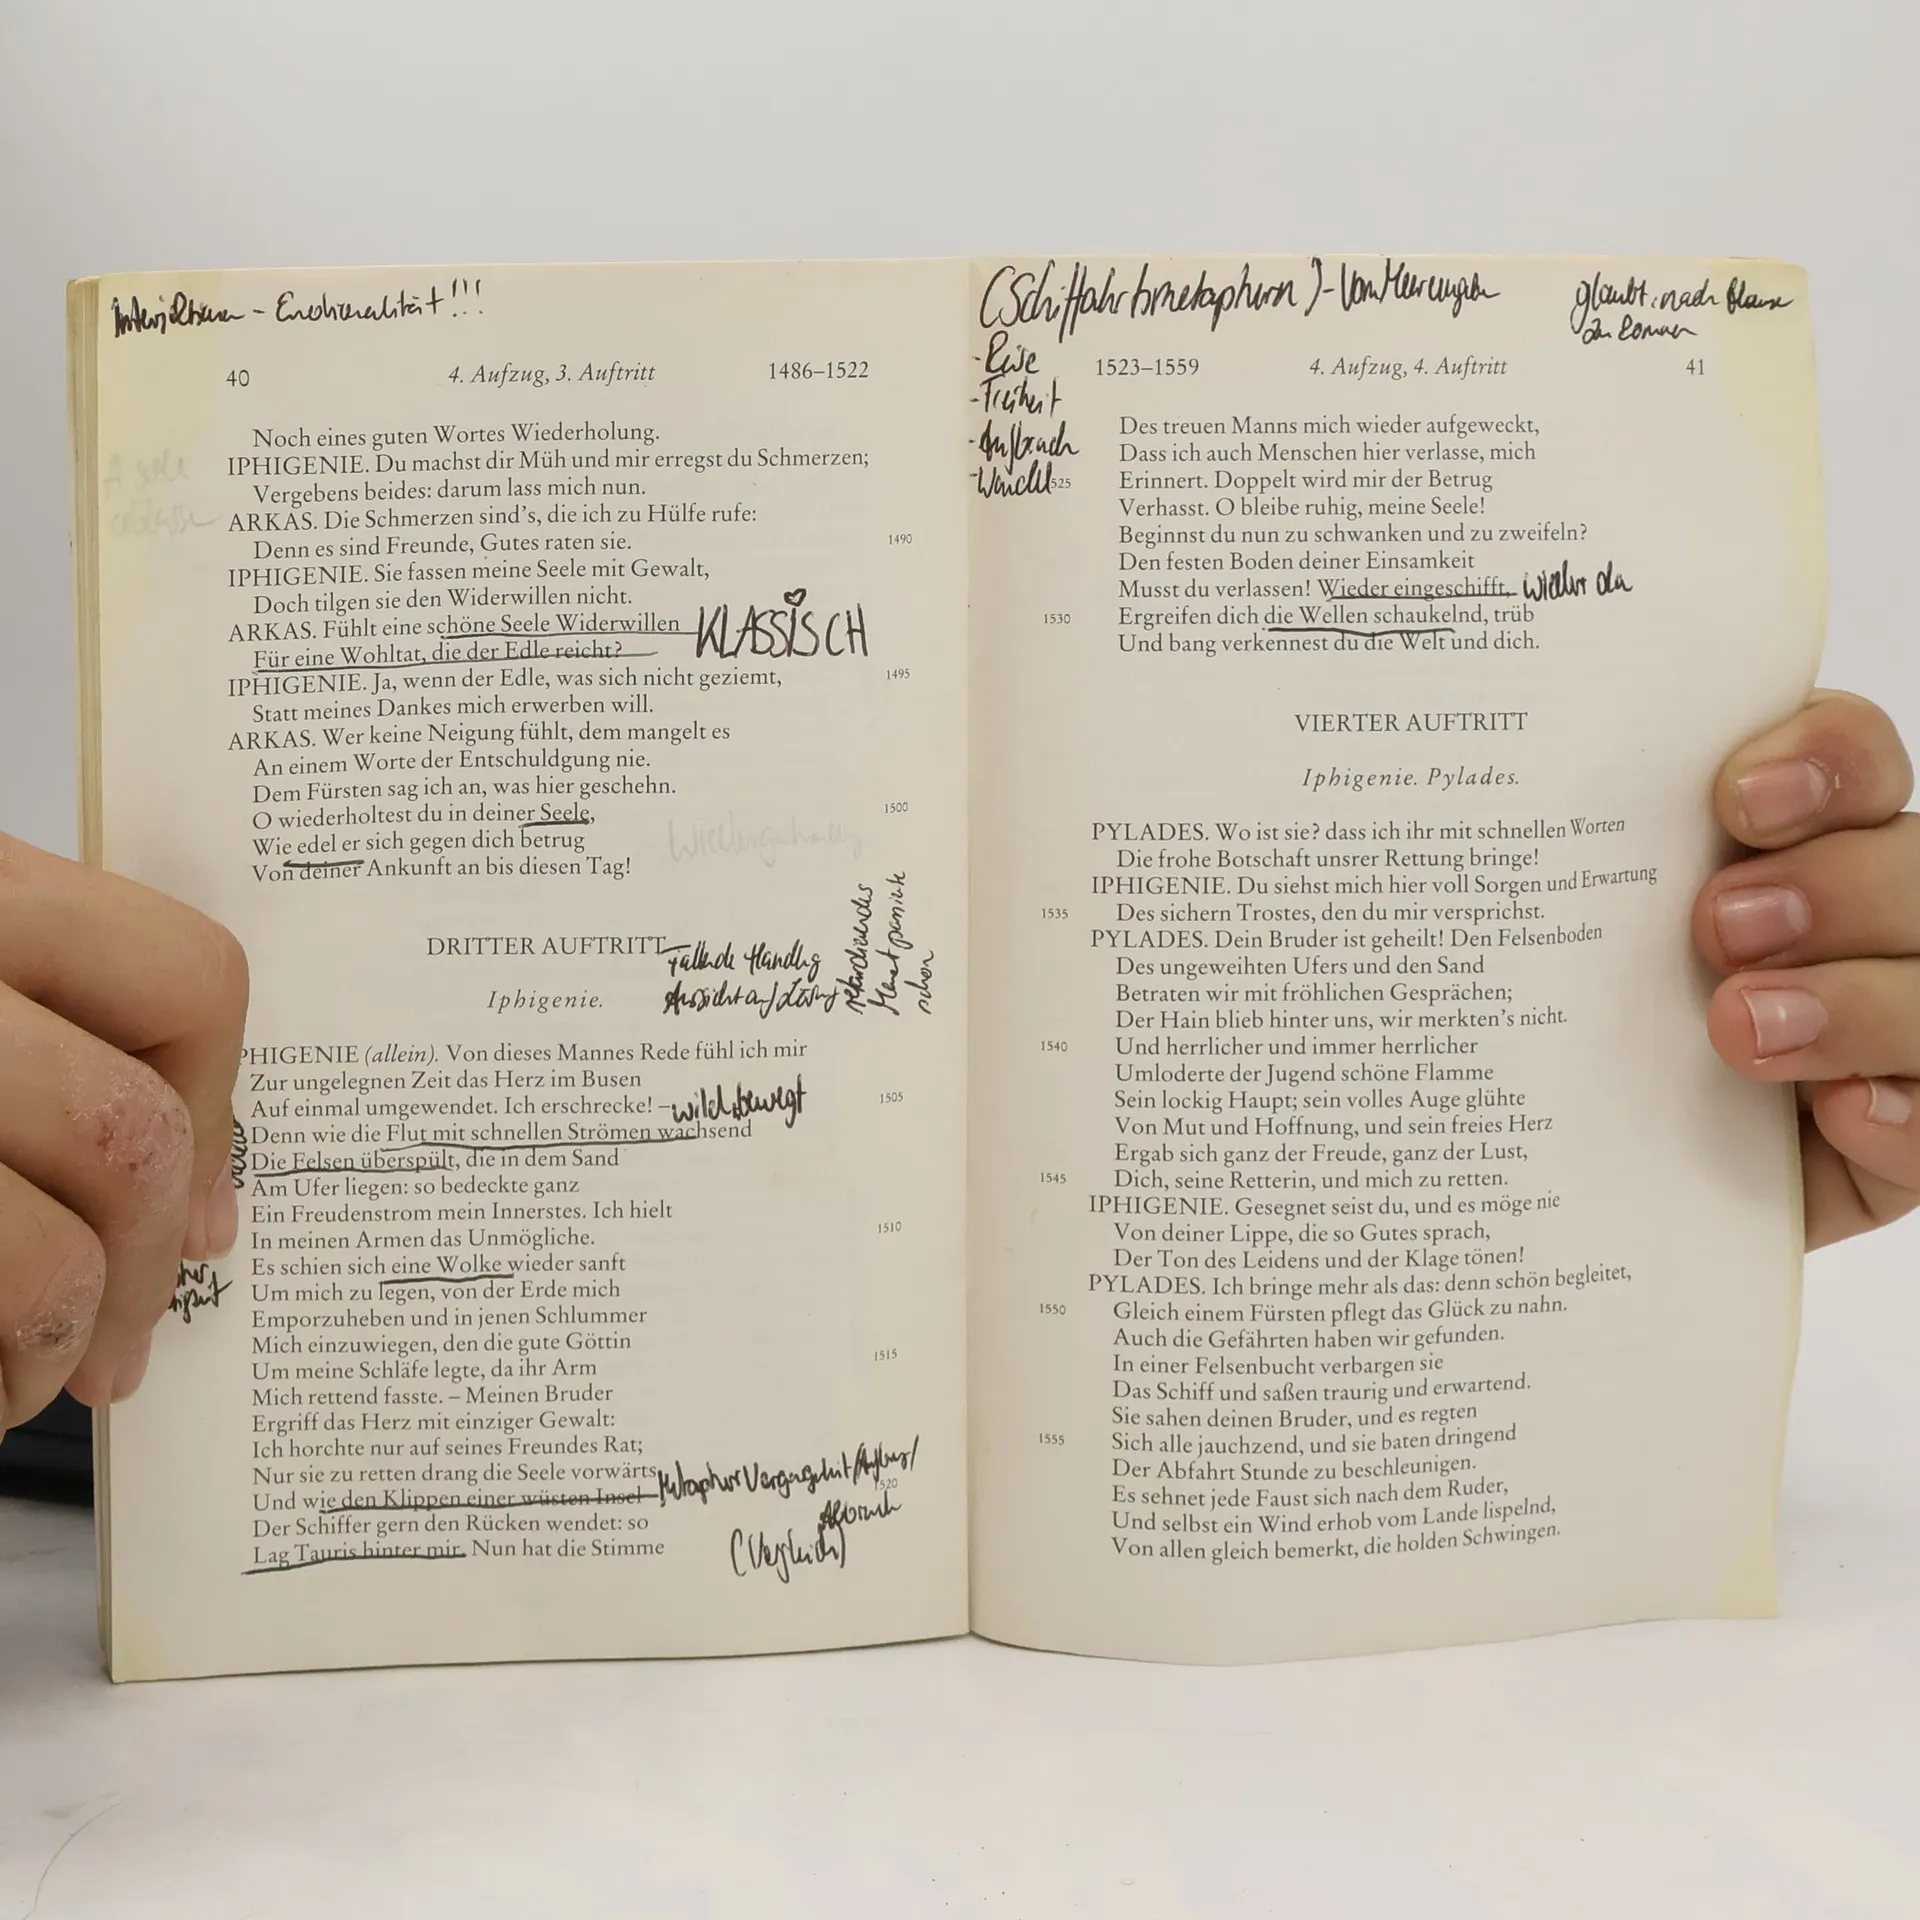 Emotionalität!!!
40 4. Aufzug, 3. Auftritt 1486–1522
Noch eines guten Wortes Wiederholung.
IPHIGENIE. Du machst dir Müh und mir erregst du Schmerzen;
Vergebens beides: darum lass mich nun.
ARKAS. Die Schmerzen sind's, die ich zu Hülfe rufe:
Denn es sind Freunde, Gutes raten sie. 1490
IPHIGENIE. Sie fassen meine Seele mit Gewalt,
Doch tilgen sie den Widerwillen nicht.
ARKAS. Fühlt eine schöne Seele Widerwillen KLASSISCH
Für eine Wohltat, die der Edle reicht?
IPHIGENIE. Ja, wenn der Edle, was sich nicht geziemt, 1495
Statt meines Dankes mich erwerben will.
ARKAS. Wer keine Neigung fühlt, dem mangelt es
An einem Worte der Entschuldgung nie.
Dem Fürsten sag ich an, was hier geschehn.
O wiederholtest du in deiner Seele, 1500
Wie edel er sich gegen dich betrug
Von deiner Ankunft an bis diesen Tag!
DRITTER AUFTRITT
Fallende Handlg
Iphigenie.
Aussicht auf Lösung
retardierendes
Moment
schon
PHIGENIE (allein). Von dieses Mannes Rede fühl ich mir
Zur ungelegnen Zeit das Herz im Busen
Auf einmal umgewendet. Ich erschrecke! – wild, bewegt 1505
Denn wie die Flut mit schnellen Strömen wachsend
Die Felsen überspült, die in dem Sand
Am Ufer liegen: so bedeckte ganz
Ein Freudenstrom mein Innerstes. Ich hielt
In meinen Armen das Unmögliche. 1510
Es schien sich eine Wolke wieder sanft
Um mich zu legen, von der Erde mich
Emporzuheben und in jenen Schlummer
Mich einzuwiegen, den die gute Göttin
Um meine Schläfe legte, da ihr Arm 1515
Mich rettend fasste. – Meinen Bruder
Ergriff das Herz mit einziger Gewalt:
Ich horchte nur auf seines Freundes Rat;
Nur sie zu retten drang die Seele vorwärts,
Metapher Vergangenheit
Und wie den Klippen einer wüsten Insel 1520
Der Schiffer gern den Rücken wendet: so
Lag Tauris hinter mir. Nun hat die Stimme
(Vergleich)
(Schiffahrtsmetaphern)
glaubt, nach Hause
zu kommen
- Reise
- Freiheit
- Aufbruch
- Wandel
1523–1559 4. Aufzug, 4. Auftritt 41
Des treuen Manns mich wieder aufgeweckt,
Dass ich auch Menschen hier verlasse, mich
525 Erinnert. Doppelt wird mir der Betrug
Verhasst. O bleibe ruhig, meine Seele!
Beginnst du nun zu schwanken und zu zweifeln?
Den festen Boden deiner Einsamkeit
Musst du verlassen! Wieder eingeschifft, wieder da
1530 Ergreifen dich die Wellen schaukelnd, trüb
Und bang verkennest du die Welt und dich.
VIERTER AUFTRITT
Iphigenie. Pylades.
PYLADES. Wo ist sie? dass ich ihr mit schnellen Worten
Die frohe Botschaft unsrer Rettung bringe!
IPHIGENIE. Du siehst mich hier voll Sorgen und Erwartung
1535 Des sichern Trostes, den du mir versprichst.
PYLADES. Dein Bruder ist geheilt! Den Felsenboden
Des ungeweihten Ufers und den Sand
Betraten wir mit fröhlichen Gesprächen;
Der Hain blieb hinter uns, wir merkten's nicht.
1540 Und herrlicher und immer herrlicher
Umloderte der Jugend schöne Flamme
Sein lockig Haupt; sein volles Auge glühte
Von Mut und Hoffnung, und sein freies Herz
Ergab sich ganz der Freude, ganz der Lust,
1545 Dich, seine Retterin, und mich zu retten.
IPHIGENIE. Gesegnet seist du, und es möge nie
Von deiner Lippe, die so Gutes sprach,
Der Ton des Leidens und der Klage tönen!
PYLADES. Ich bringe mehr als das: denn schön begleitet,
1550 Gleich einem Fürsten pflegt das Glück zu nahn.
Auch die Gefährten haben wir gefunden.
In einer Felsenbucht verbargen sie
Das Schiff und saßen traurig und erwartend.
Sie sahen deinen Bruder, und es regten
1555 Sich alle jauchzend, und sie baten dringend
Der Abfahrt Stunde zu beschleunigen.
Es sehnet jede Faust sich nach dem Ruder,
Und selbst ein Wind erhob vom Lande lispelnd,
Von allen gleich bemerkt, die holden Schwingen.